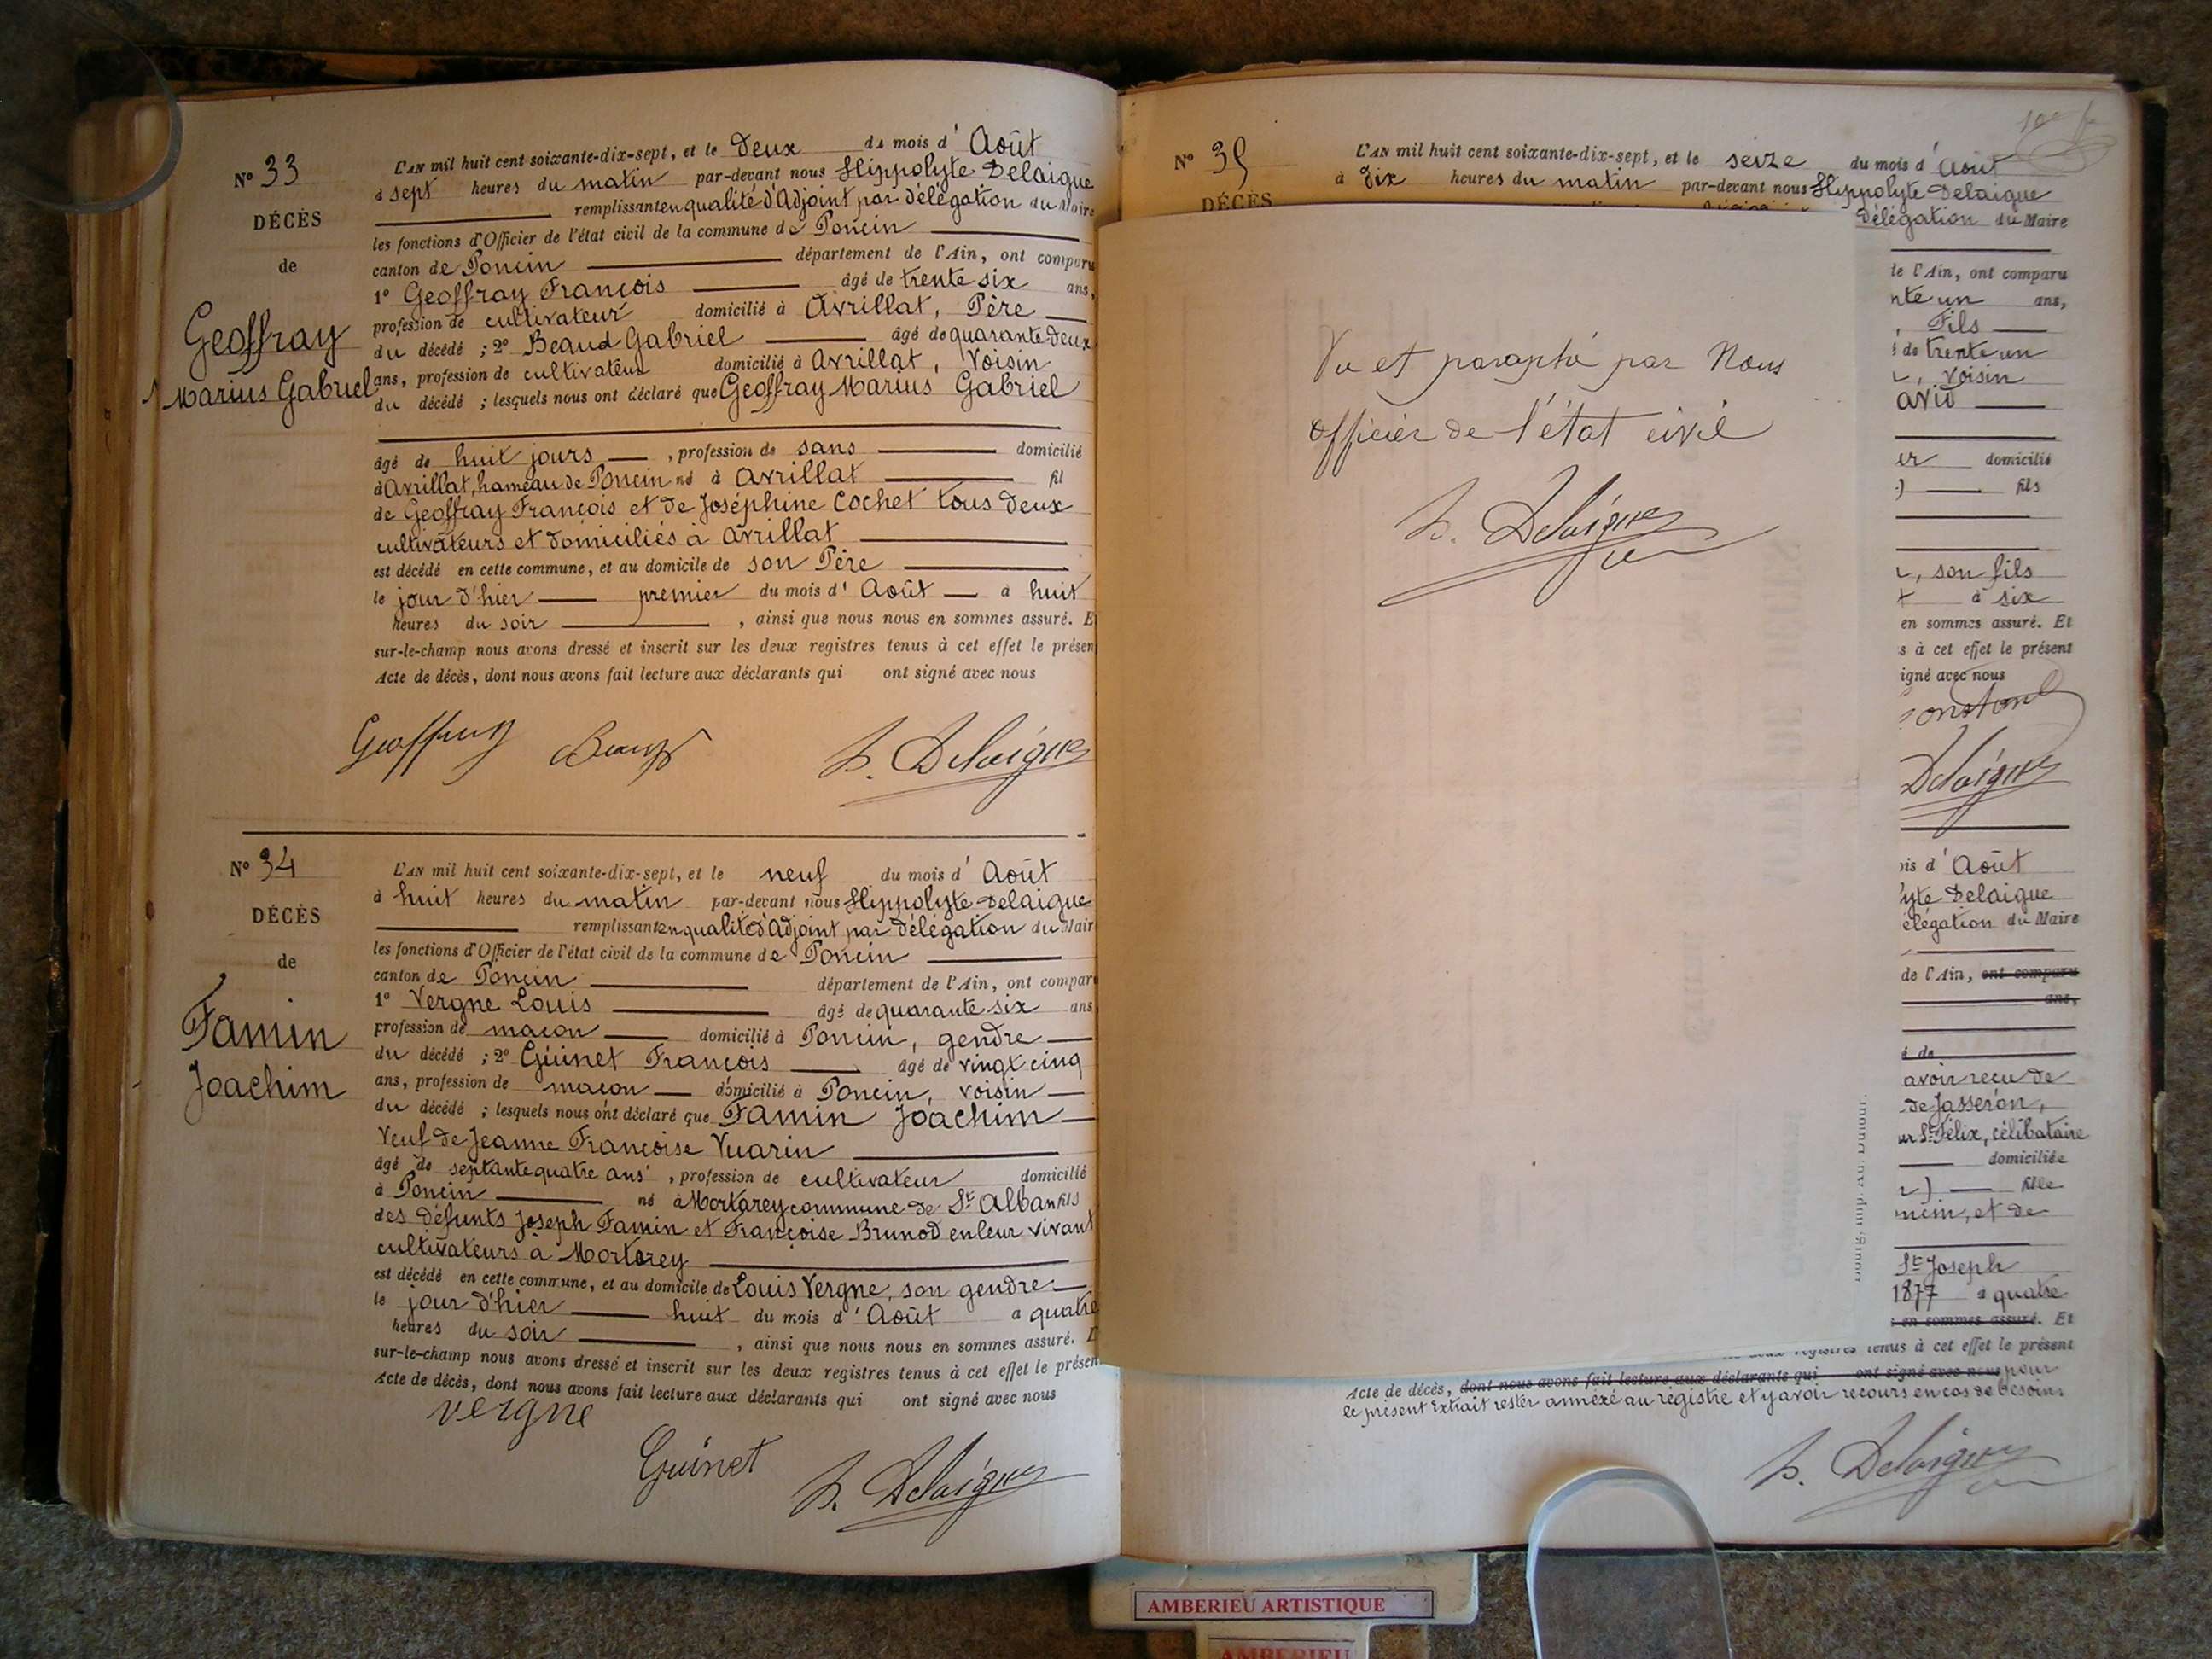 N° 33
DÉCÈS
de
Geoffray
Marius Gabriel
L'AN mil huit cent soixante-dix-sept, et le Deux du mois d' Août
à sept heures du matin par-devant nous Hippolyte Delaigue
remplissant en qualité d'Adjoint par délégation du Maire
les fonctions d'Officier de l'état civil de la commune de Poncin
canton de Poncin département de l'Ain, ont comparu
1° Geoffray François âgé de trente six ans,
profession de cultivateur domicilié à Avrillat, Père
du décédé ; 2° Beaud Gabriel âgé de quarante deux
ans, profession de cultivateur domicilié à Avrillat, Voisin
du décédé ; lesquels nous ont déclaré que Geoffray Marius Gabriel
âgé de huit jours , profession de sans domicilié
à Avrillat, hameau de Poncin né à Avrillat fil
de Geoffray François et de Joséphine Cochet tous deux
cultivateurs et domiciliés à Avrillat
est décédé en cette commune, et au domicile de son Père
le jour d'hier premier du mois d' Août à huit
heures du soir , ainsi que nous nous en sommes assuré. E
sur-le-champ nous avons dressé et inscrit sur les deux registres tenus à cet effet le présen
Acte de décès, dont nous avons fait lecture aux déclarants qui ont signé avec nous
Geoffray Beaud h. Delaigue
N° 34
DÉCÈS
de
Famin
Joachim
L'AN mil huit cent soixante-dix-sept, et le neuf du mois d' Août
à huit heures du matin par-devant nous Hippolyte Delaigue
remplissant en qualité d'Adjoint par délégation du Mair
les fonctions d'Officier de l'état civil de la commune de Poncin
canton de Poncin département de l'Ain, ont compar
1° Vergne Louis âgé de quarante six ans
profession de maçon domicilié à Poncin, gendre
du décédé ; 2° Guinet François âgé de vingt cinq
ans, profession de maçon domicilié à Poncin, voisin
du décédé ; lesquels nous ont déclaré que Famin Joachim
Veuf de Jeanne Françoise Vuarin
âgé de septante quatre ans , profession de cultivateur domicilié
à Poncin né à Mortarey commune de St Alban fils
des défunts Joseph Famin et Françoise Brunod en leur vivant
cultivateurs à Mortarey
est décédé en cette commune, et au domicile de Louis Vergne, son gendre
le jour d'hier huit du mois d' Août a quatre
heures du soir , ainsi que nous nous en sommes assuré. E
sur-le-champ nous avons dressé et inscrit sur les deux registres tenus à cet effet le présen
Acte de décès, dont nous avons fait lecture aux déclarants qui ont signé avec nous
vergne
Guinet h. Delaigue
N° 35
DÉCÈS
L'AN mil huit cent soixante-dix-sept, et le seize du mois d' Août
à Dix heures du matin par-devant nous Hippolyte Delaigue
Délégation du Maire
de l'Ain, ont comparu
nte un ans,
, Fils
de trente un
, voisin
er domicilié
fils
, son fils
à six
en sommes assuré. Et
s à cet effet le présent
igné avec nous
Delaigue
Vu et paraphé par Nous
officier de l'état civil
h. Delaigue
is d' Août
yte Delaigue
élégation du Maire
de l'Ain, ont comparu
ans,
é de
avoir reçu de
de Jasseron,
ur St Félix, célibataire
domiciliée
fille
et de
St Joseph
1877 à quatre
en sommes assuré. Et
registres tenus à cet effet le présent
Acte de décès, dont nous avons fait lecture aux déclarants qui ont signé avec nous pour
le présent Extrait rester annexé au régistre et y avoir recours en cas de besoin.
h. Delaigue
AMBERIEU ARTISTIQUE
AMBERIEU